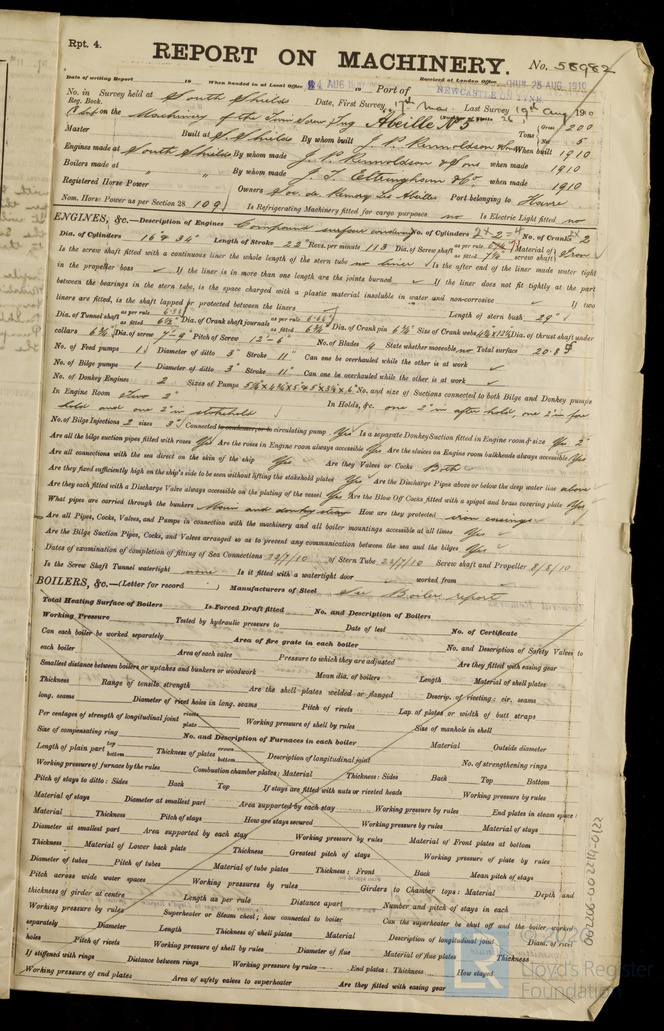 Rpt. 4.
REPORT ON MACHINERY.
No. 58982
Date of writing Report 19 When handed in at Local Office 24 AUG 1910 19 Port of Received at London Office THUR. 25 AUG. 1910
NEWCASTLE ON TYNE
No. in Survey held at South Shields Date, First Survey 17th Mar. Last Survey 19th Aug 1910
Reg. Book. (Number of Visits 26
on the Machinery of the Twin Screw Tug Abeille No 5 Tons Gross 200 Net 5
Master Built at S. Shields By whom built J. P. Rennoldson & Sons When built 1910
Engines made at South Shields By whom made J. P. Rennoldson & Sons when made 1910
Boilers made at " By whom made J. T. Eltringham & Co. when made 1910
Registered Horse Power Owners Soc. de Remorq. Les Abeilles Port belonging to Havre
Nom. Horse Power as per Section 28 109 Is Refrigerating Machinery fitted for cargo purposes no Is Electric Light fitted no
ENGINES, &c.—Description of Engines Compound surface condensing No. of Cylinders 2 x 2 = 4 No. of Cranks 2 x 2
Dia. of Cylinders 16" & 34" Length of Stroke 22" Revs. per minute 113 Dia. of Screw shaft as per rule as fitted 7⅛" Material of screw shaft Iron
Is the screw shaft fitted with a continuous liner the whole length of the stern tube no liner Is the after end of the liner made water tight
in the propeller boss If the liner is in more than one length are the joints burned If the liner does not fit tightly at the part
between the bearings in the stern tube, is the space charged with a plastic material insoluble in water and non-corrosive If two
liners are fitted, is the shaft lapped or protected between the liners Length of stern bush 29"
Dia. of Tunnel shaft as per rule 6.33 as fitted Dia. of Crank shaft journals as per rule 6.65 as fitted Dia. of Crank pin Size of Crank webs Dia. of thrust shaft under
collars Dia. of screw 7'-9" Pitch of Screw 12'-6" No. of Blades 4 State whether moveable no Total surface 20.8
No. of Feed pumps 1 Diameter of ditto 3" Stroke 11" Can one be overhauled while the other is at work
No. of Bilge pumps 1 Diameter of ditto 3" Stroke 11" Can one be overhauled while the other is at work
No. of Donkey Engines 2 Sizes of Pumps No. and size of Suctions connected to both Bilge and Donkey pumps
In Engine Room two 2" In Holds, &c. one 2" in after hold, one 2" in fore
hold and one 2" in stokehold
No. of Bilge Injections 2 sizes 3" Connected to condenser, or to circulating pump Yes Is a separate Donkey Suction fitted in Engine room & size Yes 2"
Are all the bilge suction pipes fitted with roses Yes Are the roses in Engine room always accessible Yes Are the sluices on Engine room bulkheads always accessible Yes
Are all connections with the sea direct on the skin of the ship Yes Are they Valves or Cocks Both
Are they fixed sufficiently high on the ship's side to be seen without lifting the stokehold plates Yes Are the Discharge Pipes above or below the deep water line above
Are they each fitted with a Discharge Valve always accessible on the plating of the vessel Yes Are the Blow Off Cocks fitted with a spigot and brass covering plate Yes
What pipes are carried through the bunkers Main and donkey steam How are they protected iron casings
Are all Pipes, Cocks, Valves, and Pumps in connection with the machinery and all boiler mountings accessible at all times Yes
Are the Bilge Suction Pipes, Cocks, and Valves arranged so as to prevent any communication between the sea and the bilges Yes
Dates of examination of completion of fitting of Sea Connections 22/7/10 of Stern Tube 22/7/10 Screw shaft and Propeller 8/8/10
Is the Screw Shaft Tunnel watertight none Is it fitted with a watertight door worked from
BOILERS, &c.—(Letter for record ) Manufacturers of Steel See Boiler report
Total Heating Surface of Boilers Is Forced Draft fitted No. and Description of Boilers
Working Pressure Tested by hydraulic pressure to Date of test No. of Certificate
Can each boiler be worked separately Area of fire grate in each boiler No. and Description of Safety Valves to
each boiler Area of each valve Pressure to which they are adjusted Are they fitted with easing gear
Smallest distance between boilers or uptakes and bunkers or woodwork Mean dia. of boilers Length Material of shell plates
Thickness Range of tensile strength Are the shell plates welded or flanged Descrip. of riveting: cir. seams
long. seams Diameter of rivet holes in long. seams Pitch of rivets Lap of plates or width of butt straps
Per centages of strength of longitudinal joint rivets plate Working pressure of shell by rules Size of manhole in shell
Size of compensating ring No. and Description of Furnaces in each boiler Material Outside diameter
Length of plain part top bottom Thickness of plates crown bottom Description of longitudinal joint No. of strengthening rings
Working pressure of furnace by the rules Combustion chamber plates: Material Thickness: Sides Back Top Bottom
Pitch of stays to ditto: Sides Back Top If stays are fitted with nuts or riveted heads Working pressure by rules
Material of stays Diameter at smallest part Area supported by each stay Working pressure by rules End plates in steam space:
Material Thickness Pitch of stays How are stays secured Working pressure by rules Material of stays
Diameter at smallest part Area supported by each stay Working pressure by rules Material of Front plates at bottom
Thickness Material of Lower back plate Thickness Greatest pitch of stays Working pressure of plate by rules
Diameter of tubes Pitch of tubes Material of tube plates Thickness: Front Back Mean pitch of stays
Pitch across wide water spaces Working pressures by rules Girders to Chamber tops: Material Depth and
thickness of girder at centre Length as per rule Distance apart Number and pitch of stays in each
Working pressure by rules Superheater or Steam chest; how connected to boiler Can the superheater be shut off and the boiler worked
separately Diameter Length Thickness of shell plates Material Description of longitudinal joint Diam. of rivet
holes Pitch of rivets Working pressure of shell by rules Diameter of flue Material of flue plates Thickness
If stiffened with rings Distance between rings Working pressure by rules End plates: Thickness How stayed
Working pressure of end plates Area of safety valves to superheater Are they fitted with easing gear
002206-002214-0122
© 2020
LR
Lloyd's Register
Foundation